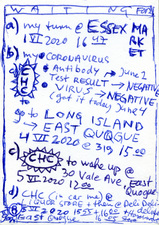 WAITING FOR:
a) my turn @ ESSEX MARKET
1 VI 2020 16 47
b) my CORONAVIRUS
• Antibody → June 2
Test Result → NEGATIVE
• VIRUS → NEGATIVE
got it today June 4
c) go to LONG ISLAND
→ EAST QUOGUE
4 VI 2020 @ 319 15 00
d) CHC to wake up @
30 Vale Ave, EAST QUOGUE
5 VI 2020 12 00
CHC (in car me) @
LIQUOR STORE + them @ Deli
5 VI 2020 15 55 → 16 05
East Quogue